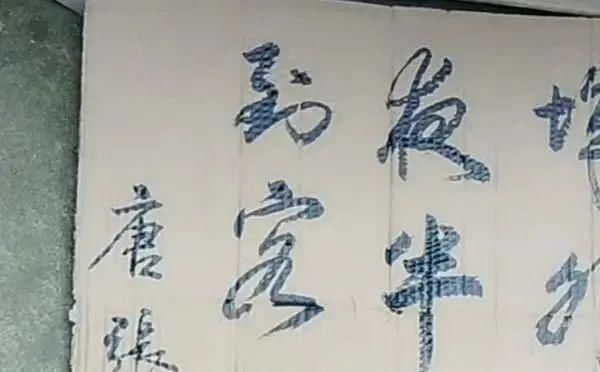 夜半
到客
唐張